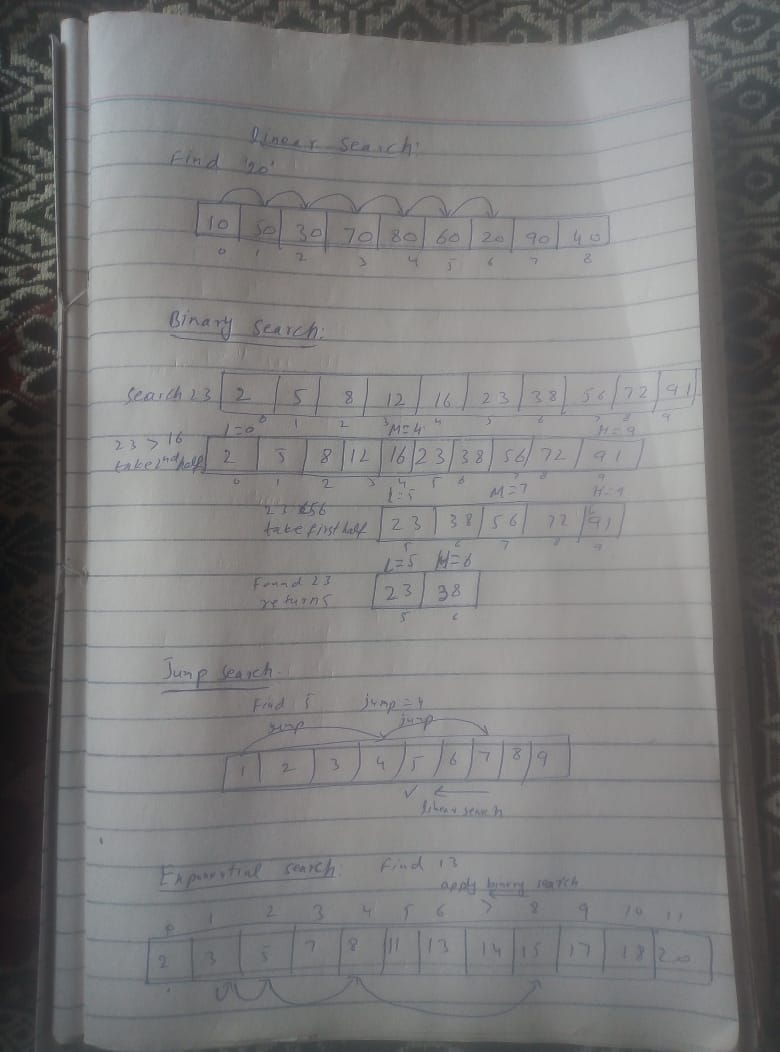 Linear Search:
Find '20'
10 50 30 70 80 60 20 90 40
0 1 2 3 4 5 6 7 8
Binary Search:
Search 23 2 5 8 12 16 23 38 56 72 91
0 1 2 3 4 5 6 7 8 9
L=0 M=4 H=9
23 > 16
take 2nd half 2 5 8 12 16 23 38 56 72 91
0 1 2 3 4 5 6 7 8 9
L=5 M=7 H=9
23 < 56
take first half 23 38 56 72 91
5 6 7 8 9
L=5 M=6
Found 23
returns 23 38
5 6
Jump Search.
Find 5 jump = 4
jump jump
1 2 3 4 5 6 7 8 9
✓ linear search
Exponential search: Find 13
apply binary search
0 1 2 3 4 5 6 7 8 9 10 11
2 3 5 7 8 11 13 14 15 17 18 20